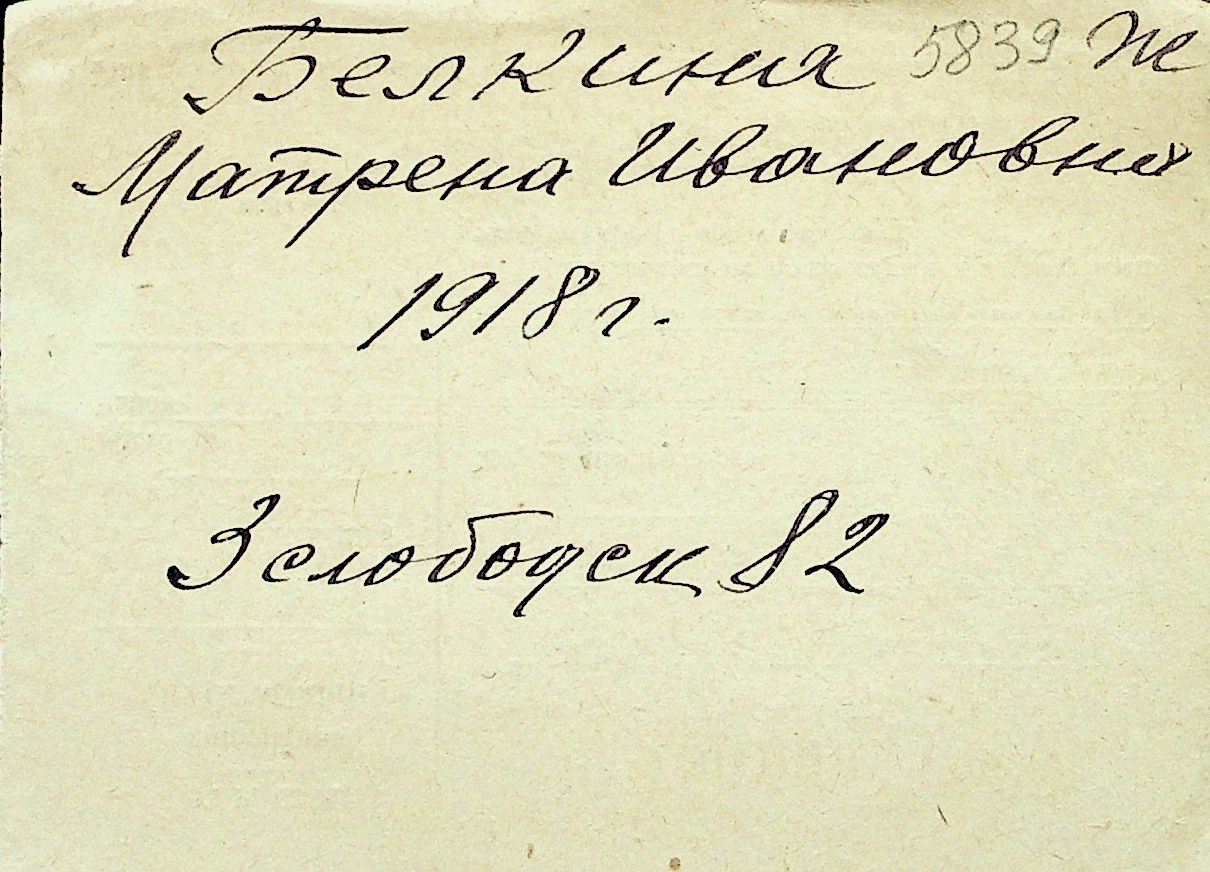 Белкина 5839 Ж
Матрена Ивановна
1918 г.
3 слободск 82